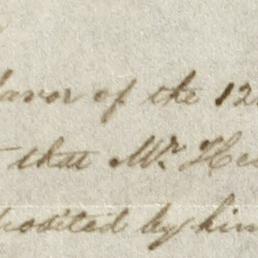 favor of the 12
that Mr. He
posited by him